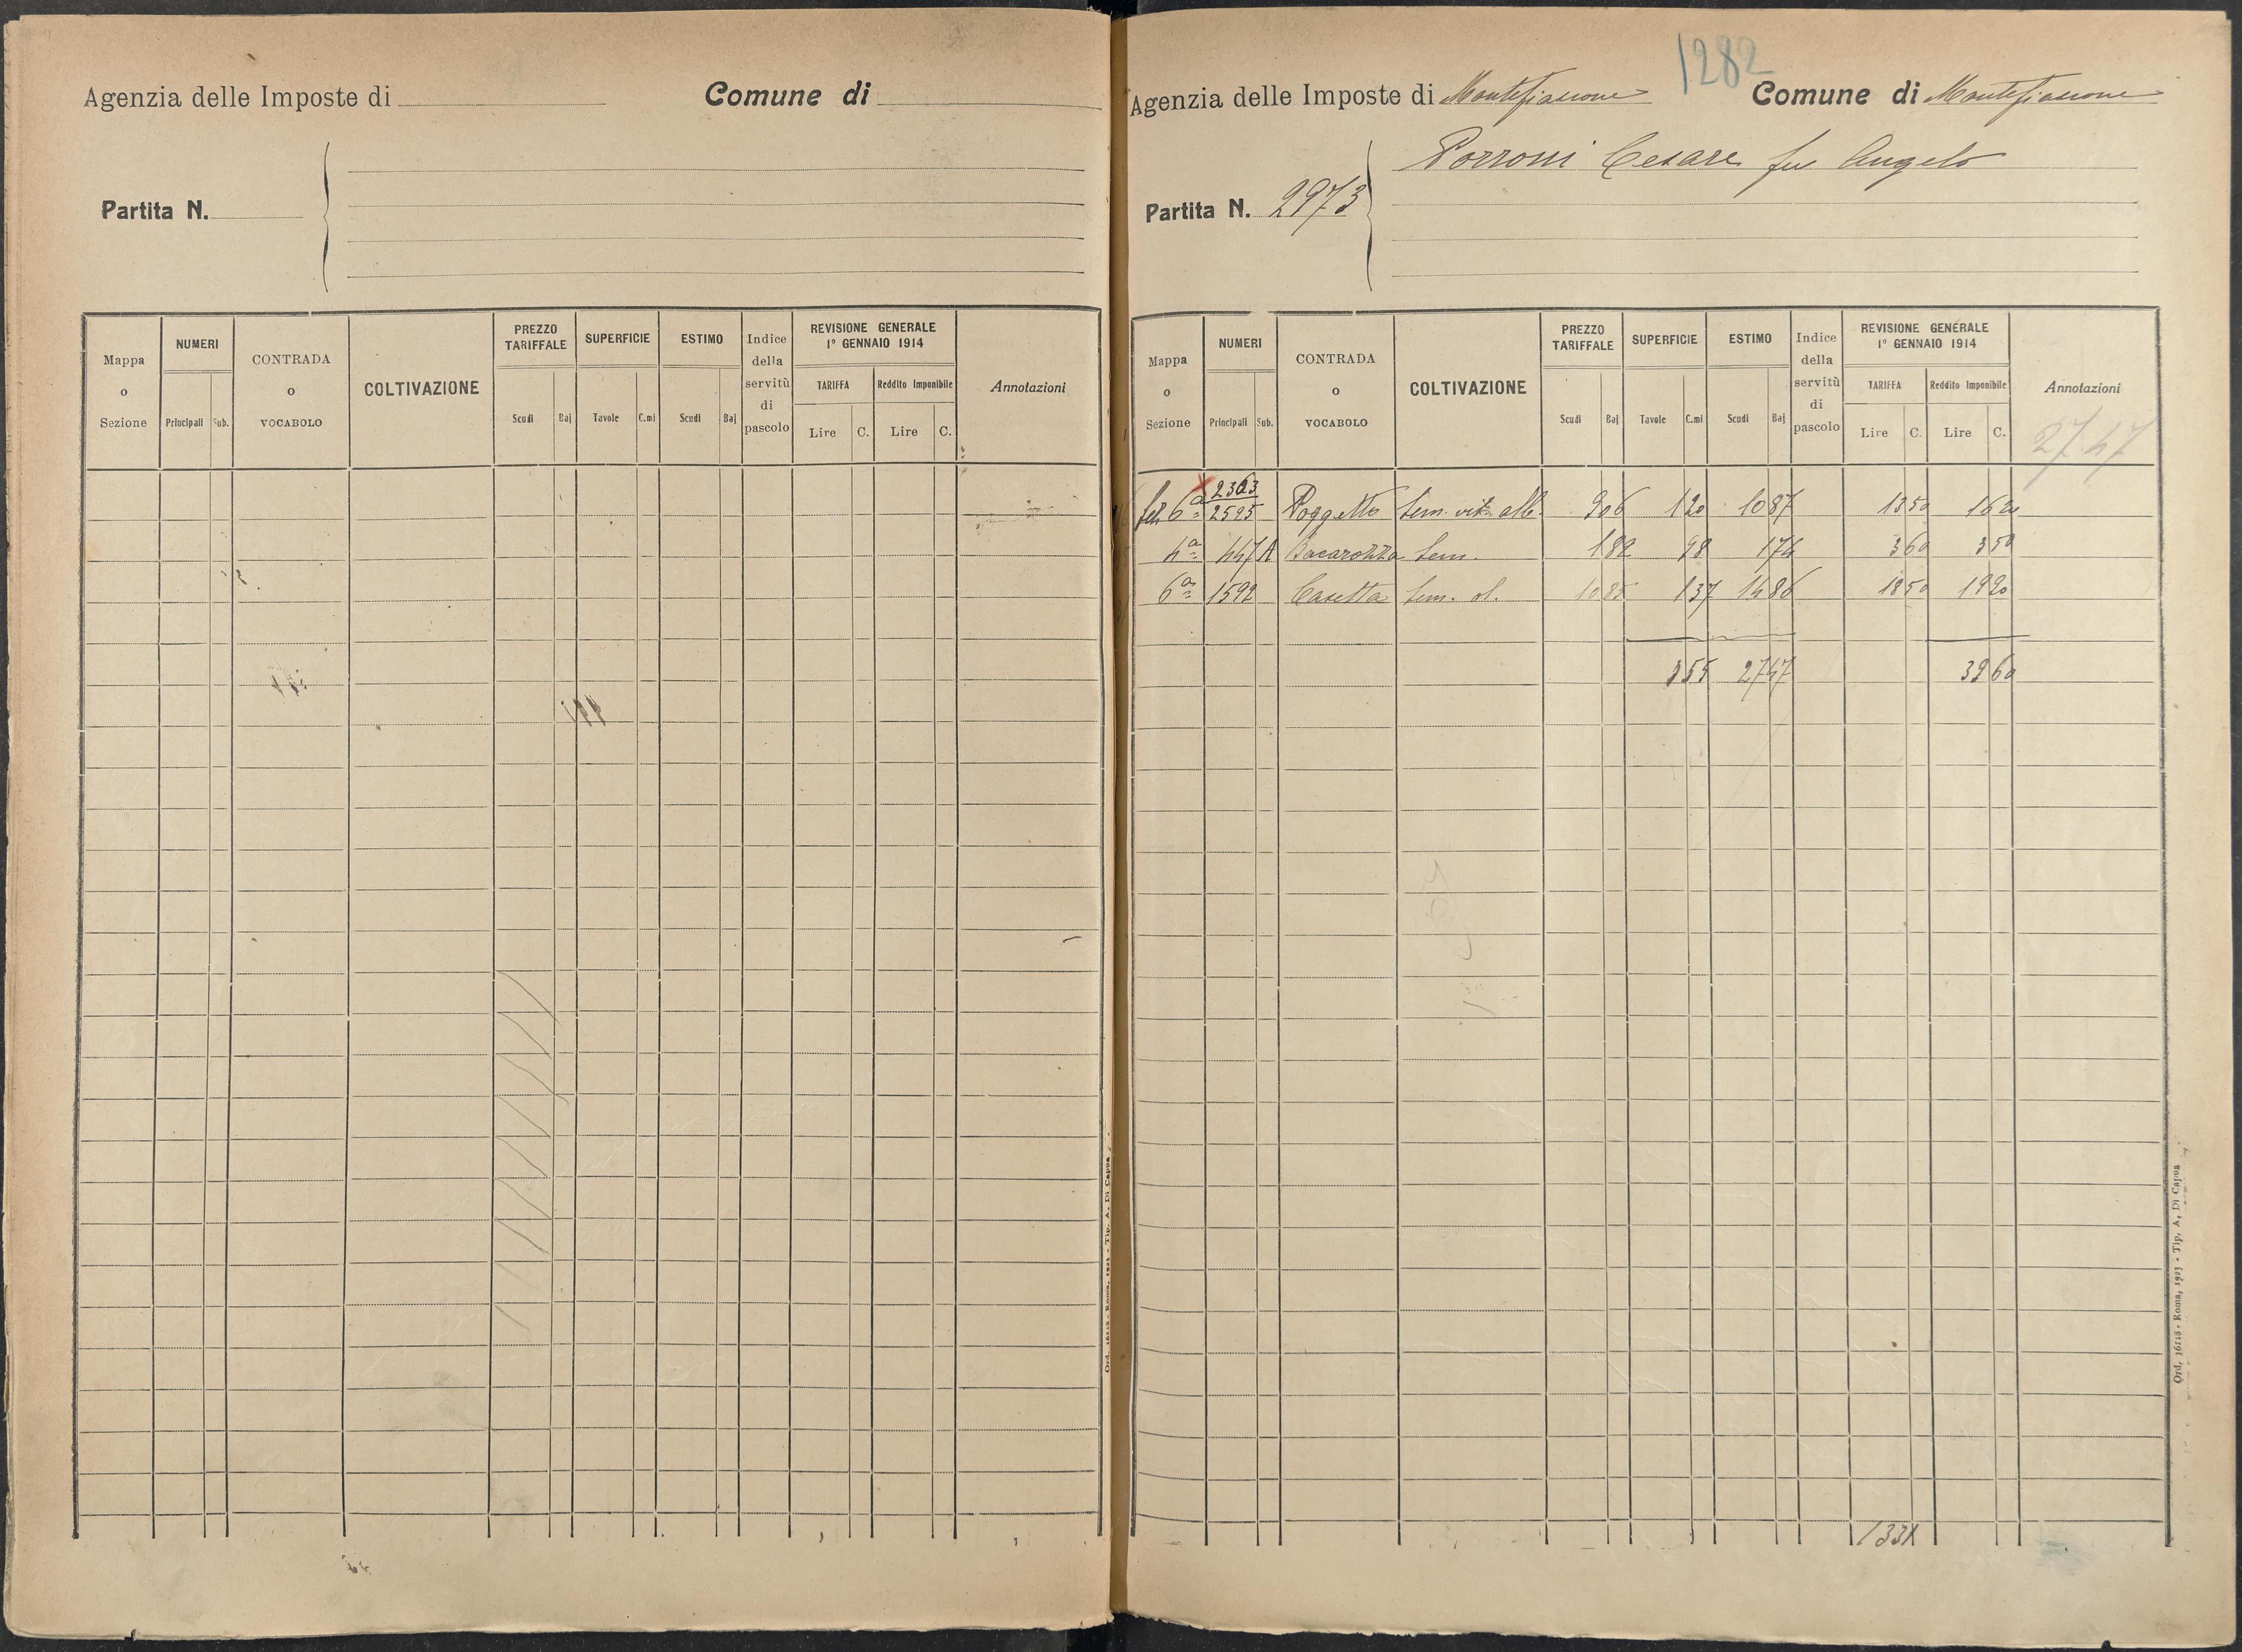 Agenzia delle Imposte di
Comune di
Partita N.
Mappa o Sezione
NUMERI
Principali
Sub.
CONTRADA o VOCABOLO
COLTIVAZIONE
PREZZO TARIFFALE
Scudi
Baj
SUPERFICIE
Tavole
C.mi
ESTIMO
Scudi
Baj
Indice della servitù di pascolo
REVISIONE GENERALE
1° GENNAIO 1914
TARIFFA
Lire
C.
Reddito Imponibile
Lire
C.
Annotazioni
1282
Agenzia delle Imposte di Montefiascone
Comune di Montefiascone
Porroni Cesare fu Angelo
Partita N. 2973
Mappa o Sezione
NUMERI
Principali
Sub.
CONTRADA o VOCABOLO
COLTIVAZIONE
PREZZO TARIFFALE
Scudi
Baj
SUPERFICIE
Tavole
C.mi
ESTIMO
Scudi
Baj
Indice della servitù di pascolo
REVISIONE GENERALE
1° GENNAIO 1914
TARIFFA
Lire
C.
Reddito Imponibile
Lire
C.
Annotazioni
2747
6a 2363 2595 Poggetto Sem. vit. alb. 906 120 1087 1350 1620
4a 447 A Bacarozza Sem. 182 98 174 360 350
6a 1592 Casetta Sem. ol. 1085 137 1486 1850 1920
355 2747 3960
Ord. 16118 - Roma, 1923 - Tip. A. Di Capua
Ord. 16118 - Roma, 1923 - Tip. A. Di Capua